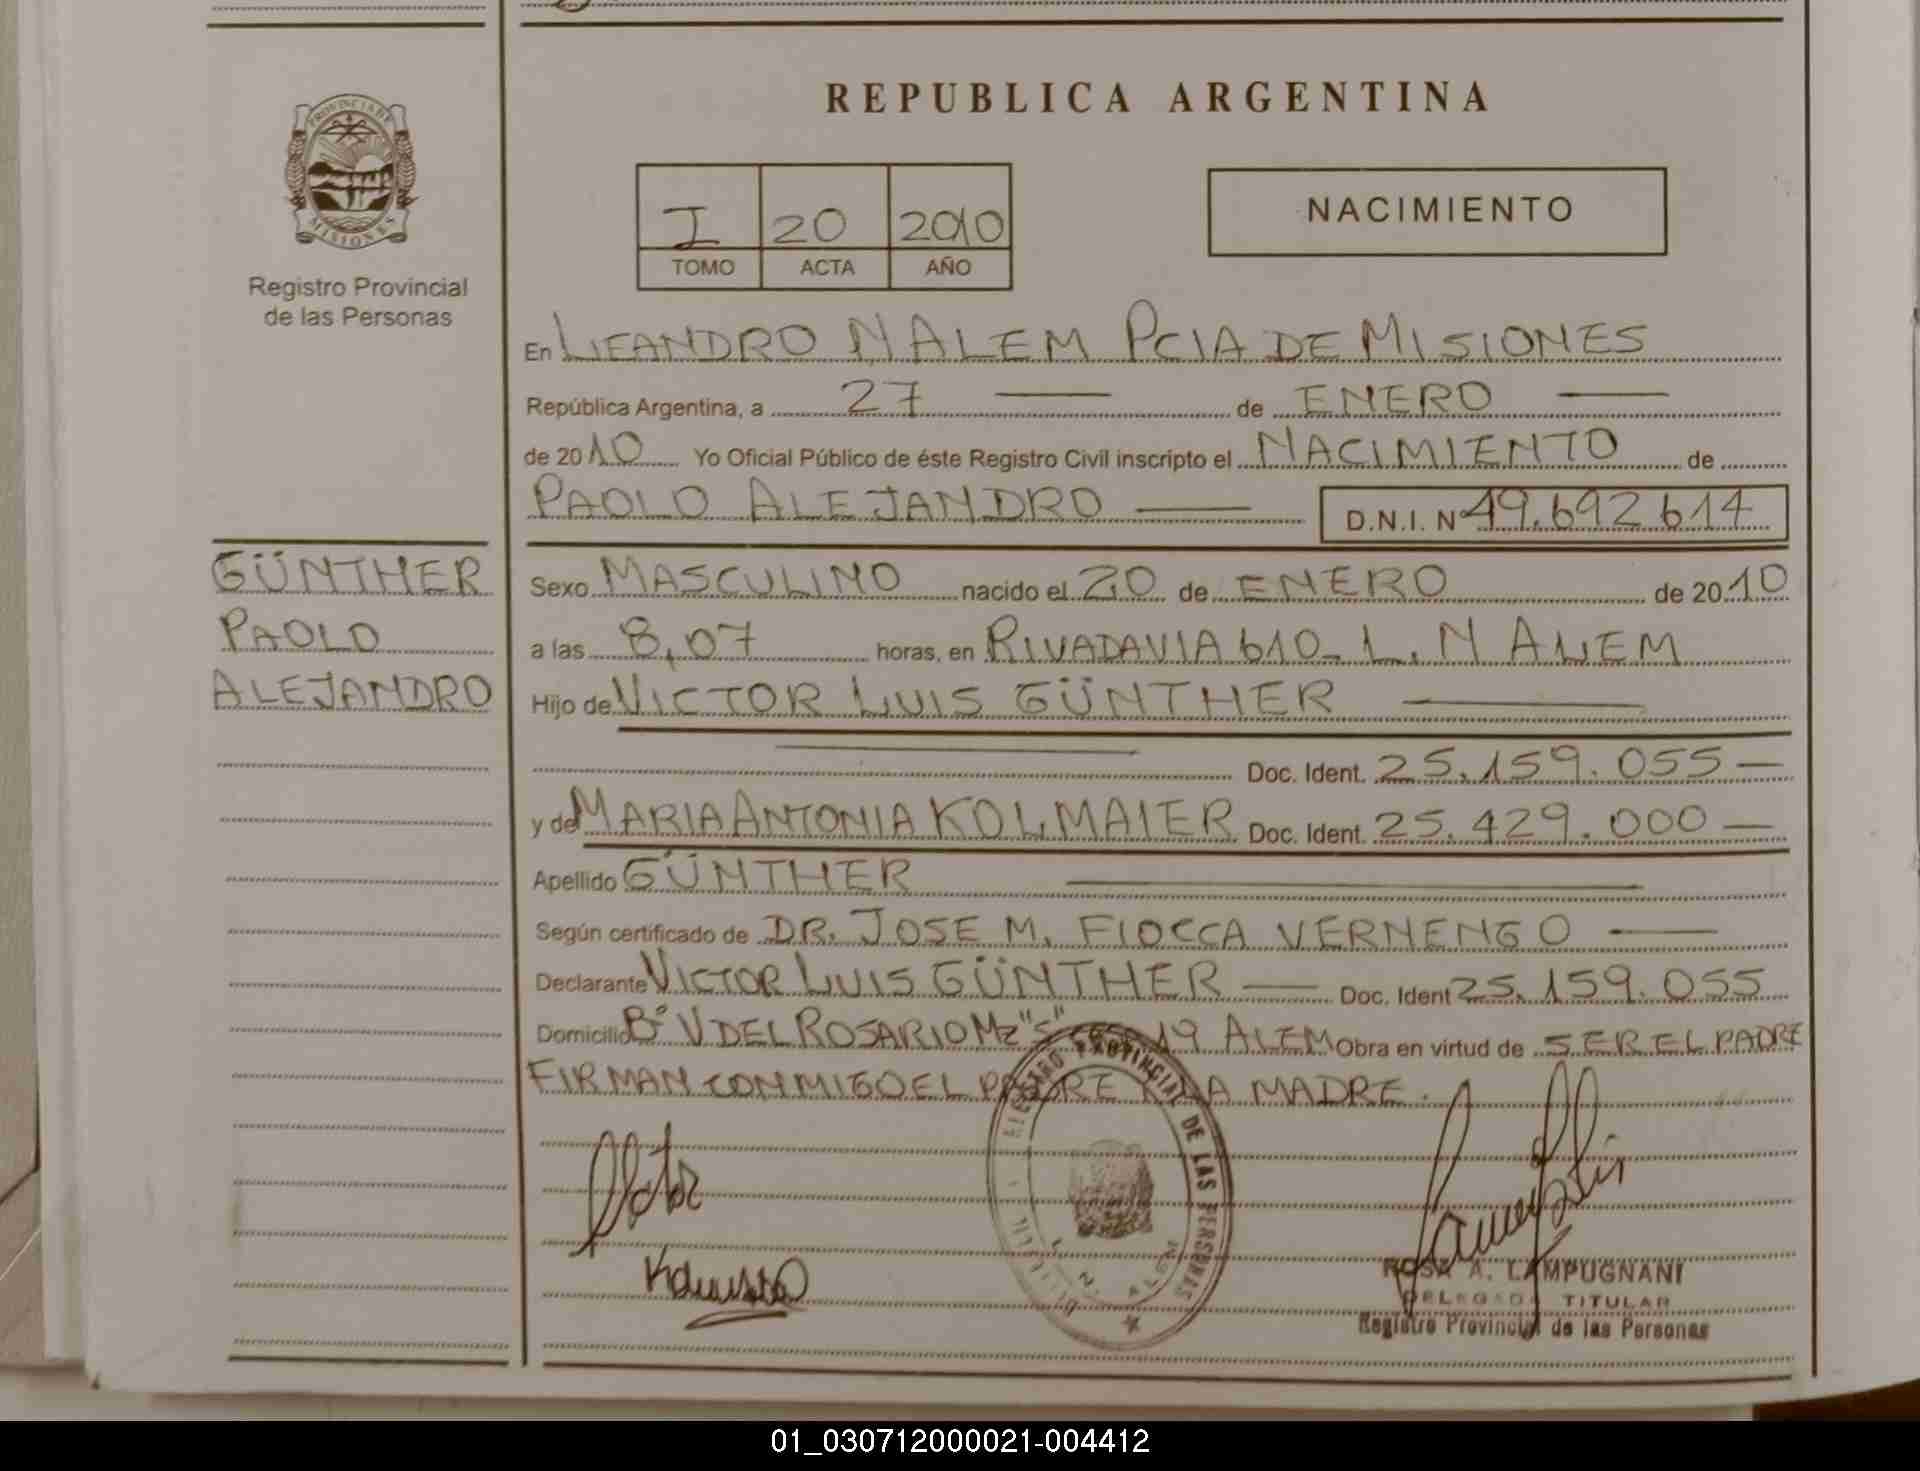 REPUBLICA ARGENTINA
PROVINCIA DE
MISIONES
Registro Provincial
de las Personas
I 20 2010
TOMO ACTA AÑO
NACIMIENTO
En LEANDRO N ALEM PCIA DE MISIONES
República Argentina, a 27 — de ENERO —
de 2010 Yo Oficial Público de éste Registro Civil inscripto el NACIMIENTO de
PAOLO ALEJANDRO — D.N.I. Nº 49.692 614
GÜNTHER
PAOLO
ALEJANDRO
Sexo MASCULINO nacido el 20 de ENERO de 2010
a las 8,07 horas, en RIVADAVIA 610_ L. N ALEM
Hijo de VICTOR LUIS GÜNTHER —
— Doc. Ident. 25.159.055 —
y de MARIA ANTONIA KOLMAIER Doc. Ident. 25.429.000 —
Apellido GÜNTHER —
Según certificado de DR. JOSE M. FIOCCA VERNENGO —
Declarante VICTOR LUIS GÜNTHER — Doc. Ident 25.159.055
Domicilio Bº V DEL ROSARIO Mz "S" 19 ALEM Obra en virtud de SER EL PADRE
FIRMAN CONMIGO EL PADRE Y LA MADRE.
REGISTRO PROVINCIAL DE LAS PERSONAS
L. N. ALEM
ROSA A. LAMPUGNANI
DELEGADA TITULAR
Registro Provincial de las Personas
01_030712000021-004412